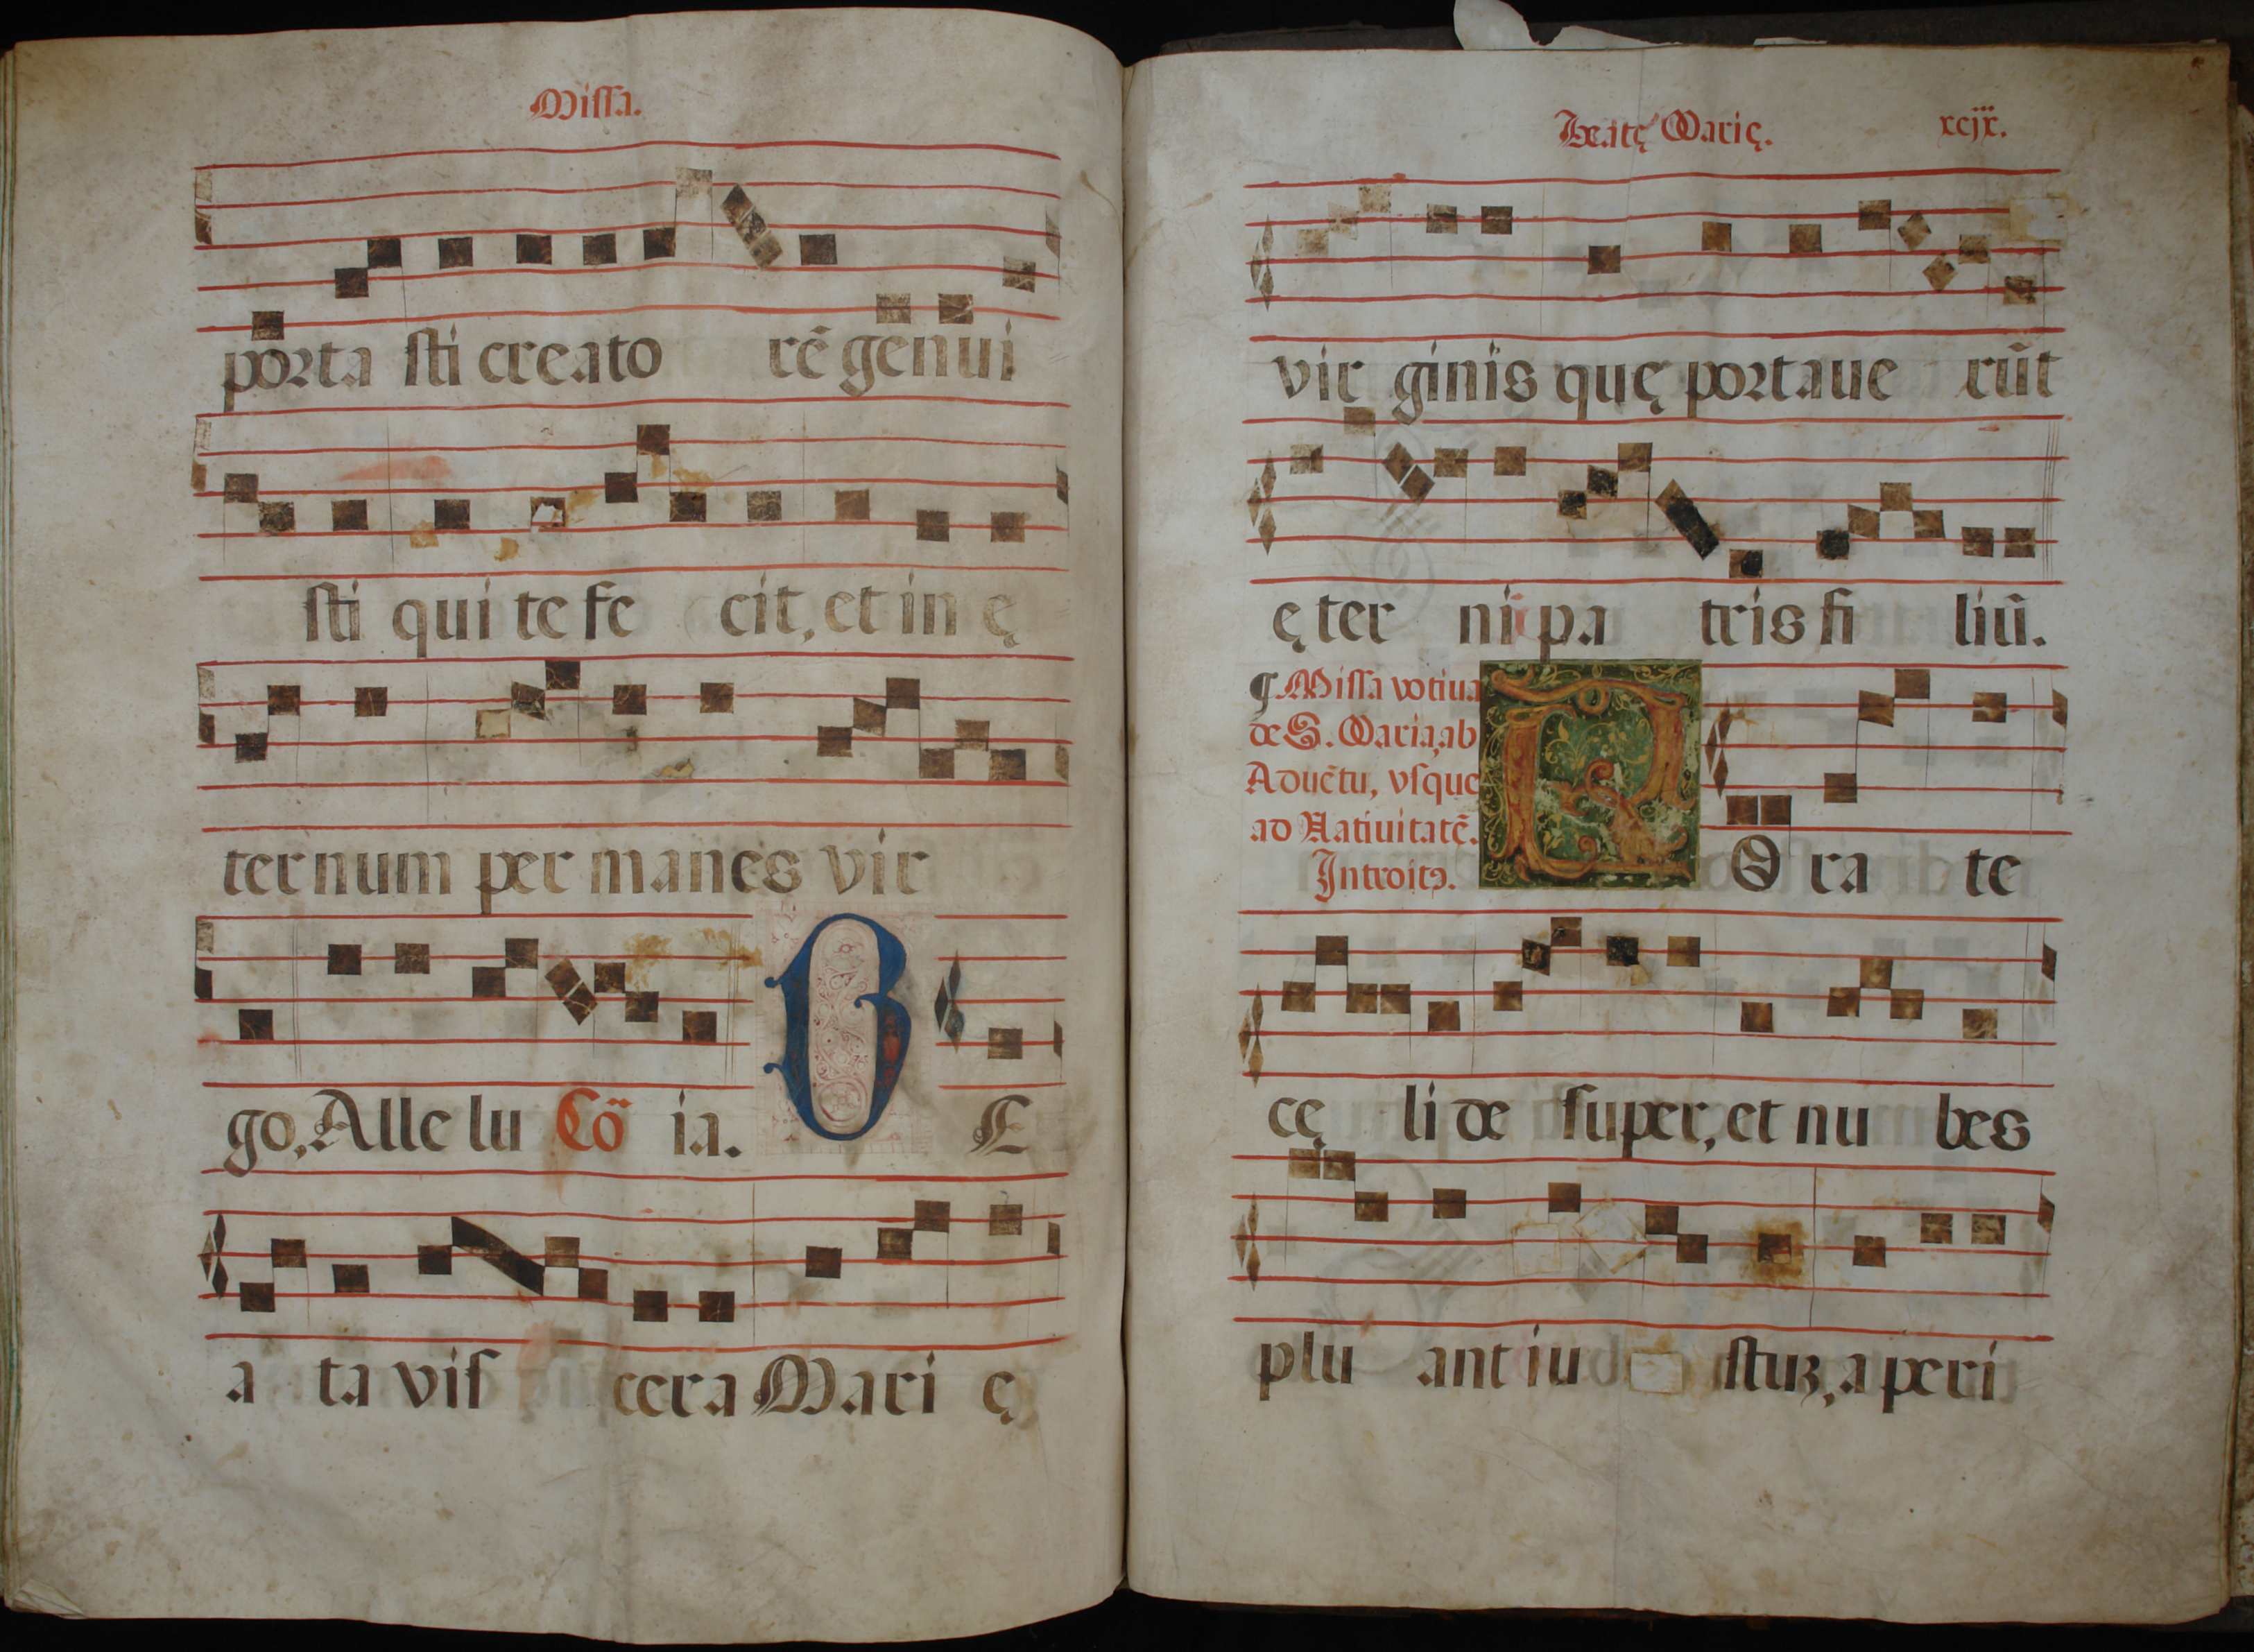 Missa.
porta sti creato rẽ genui
sti qui te fe cit, et in ę
ternum per manes vir
go, Alle lu Cõ ia. B E
a ta vis cera Mari ę
Beatę Marię. xcjx.
vir ginis quę portaue rũt
ę ter ni pa tris fi liũ.
¶ Missa votiua
de S. Maria, ab
Aduẽtu, vsque
ad Natiuitatẽ.
Introitꝰ.
R O ra te
cę li de super, et nu bes
plu ant iu stuꝫ, a peri